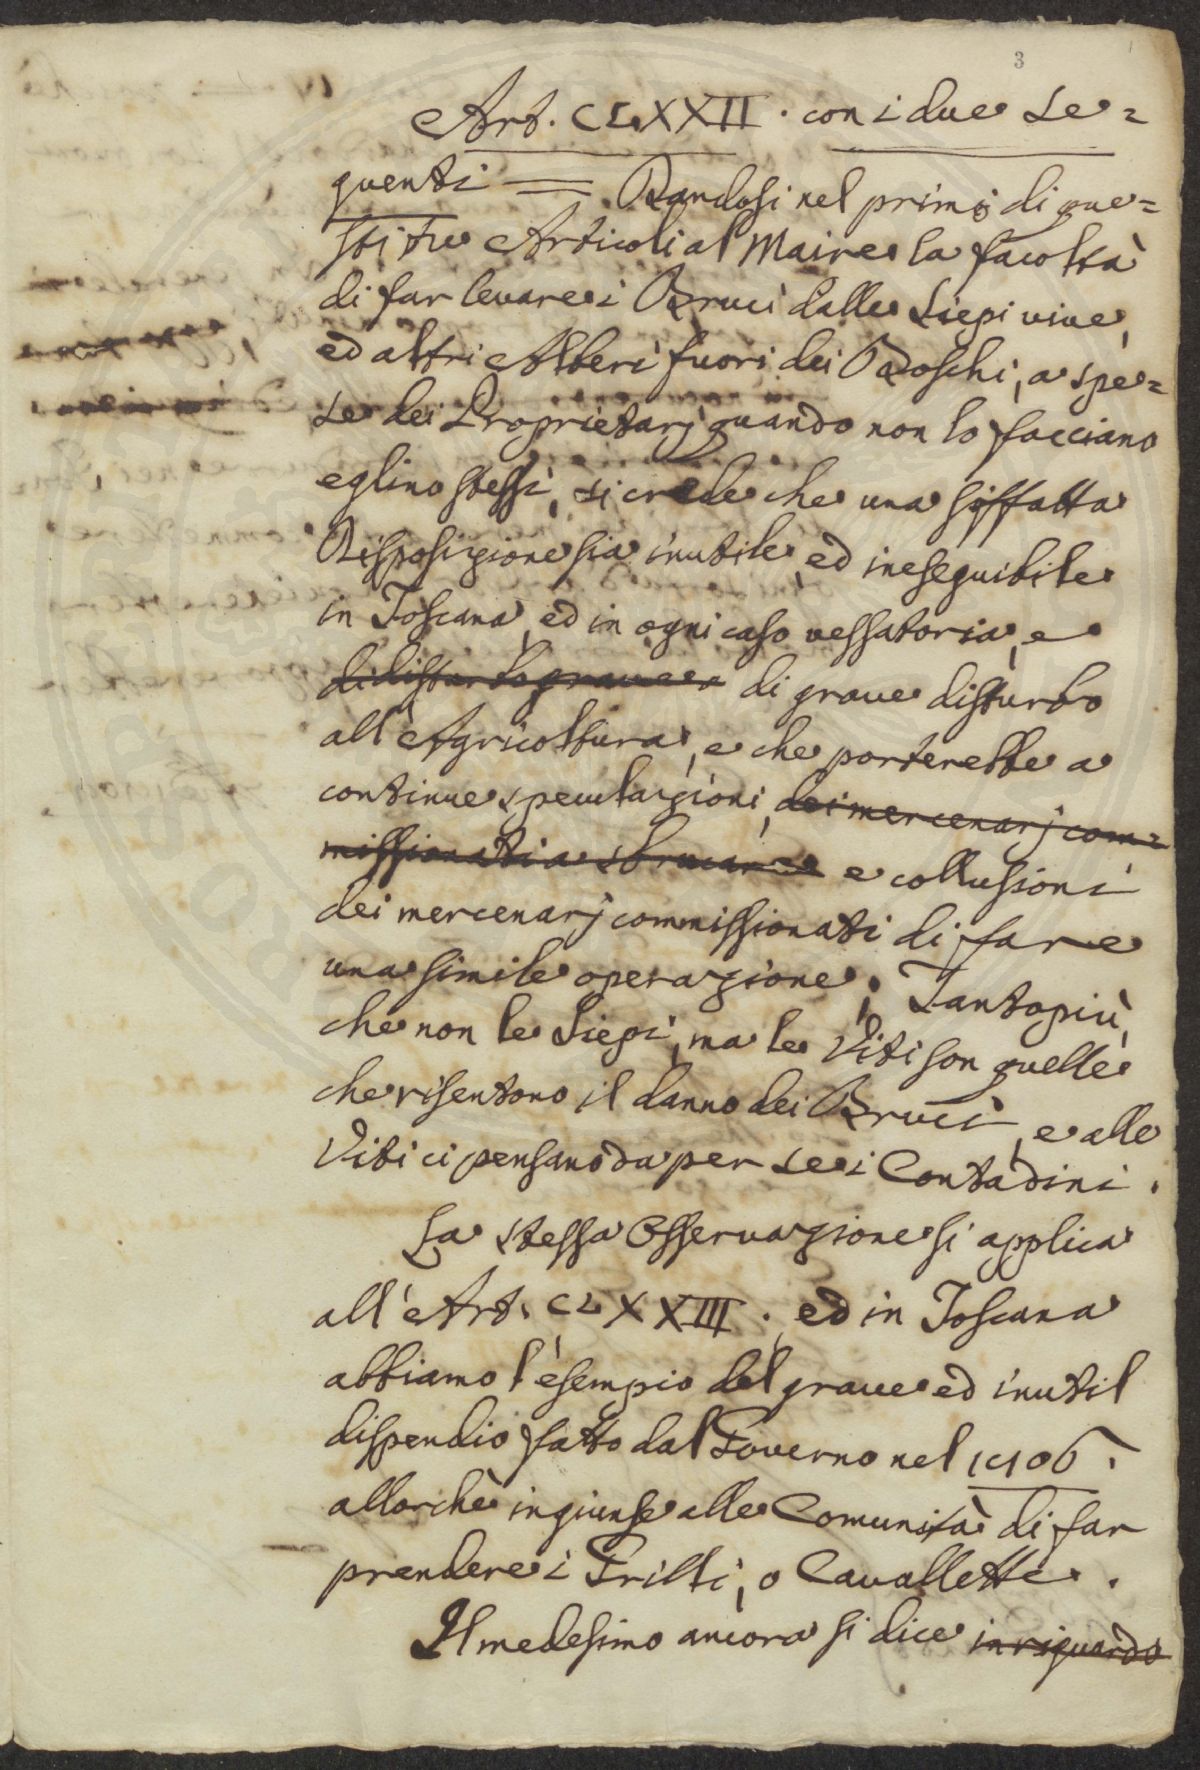 3
Art. CLXXII. con i due Se=
guenti = Dandosi nel primo di que=
sti tre Articoli al Maire la facoltà
di far levare i Bruci dalle Siepi vive,
ed altri Alberi fuori dei Boschi, a spe=
se dei Proprietarj quando non lo facciano
eglino stessi, si crede che una siffatta
Disposizione sia inutile, ed ineseguibile
in Toscana, ed in ogni caso vessatoria, e
di disturbo grave di grave disturbo
all'Agricoltura, e che porterebbe a
continue speculazioni, dei mercenarj com=
missionati a sbrucare e collusioni
dei mercenarj commissionati di fare
una simile operazione; Tantopiù,
che non le Siepi, ma le Viti son quelle
che risentono il danno dei Bruci, e alle
Viti ci pensano da per se i Contadini.
La stessa Osservazione si applica
all'Art. CLXXIII. ed in Toscana
abbiamo l'esempio del grave ed inutil
dispendio fatto dal Governo nel
allorchè ingiunse alle Comunità di far
prendere i Grilli, o Cavallette.
Il medesimo ancora si dice in riguardo